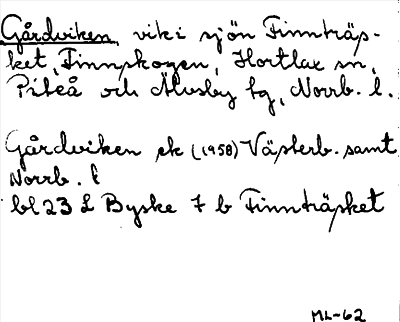 Gårdviken vik i sjön Finnträs-
ket, Finnskogen, Hortlax sn,
Piteå och Älvsby tg, Norrb. l.
Gårdviken ek (1958) Västerb. samt
Norrb. l
bl 23 L Byske 7 b Finnträsket
ML-62